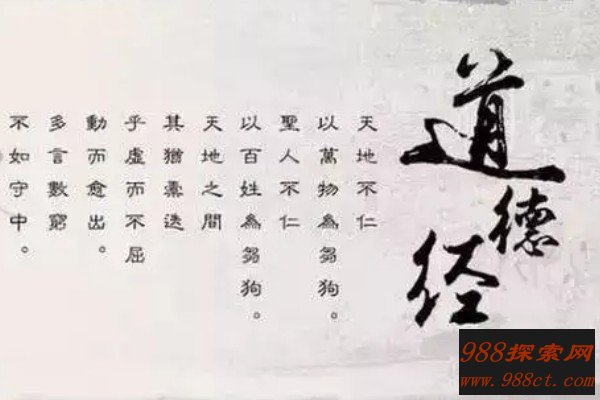 道德经
天地不仁
以萬物為芻狗。
聖人不仁
以百姓為芻狗。
天地之間
其猶橐迭
乎虛而不屈
動而愈出。
多言數窮
不如守中。
988探索网
www.988ct.com